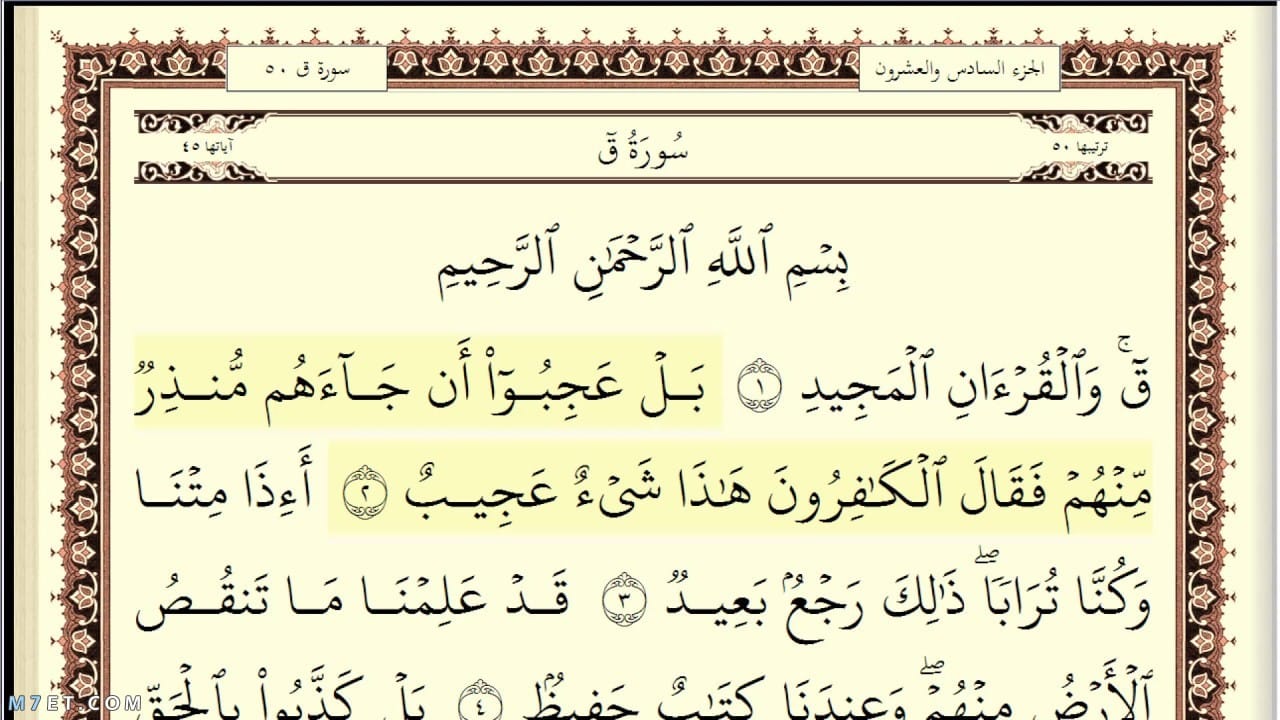 الجزء السادس والعشرون
سورة ق ٥٠
ترتيبها ٥٠
سُورَةُ قٓ
آياتها ٤٥
بِسۡمِ ٱللَّهِ ٱلرَّحۡمَٰنِ ٱلرَّحِيمِ
قٓۚ وَٱلۡقُرۡءَانِ ٱلۡمَجِيدِ ١ بَلۡ عَجِبُوٓاْ أَن جَآءَهُم مُّنذِرٞ
مِّنۡهُمۡ فَقَالَ ٱلۡكَٰفِرُونَ هَٰذَا شَيۡءٌ عَجِيبٌ ٢ أَءِذَا مِتۡنَا
وَكُنَّا تُرَابٗاۖ ذَٰلِكَ رَجۡعُۢ بَعِيدٞ ٣ قَدۡ عَلِمۡنَا مَا تَنقُصُ
ٱلۡأَرۡضُ مِنۡهُمۡۖ وَعِندَنَا كِتَٰبٌ حَفِيظُۢ ٤ بَلۡ كَذَّبُواْ بِٱلۡحَقِّ
M7ET.COM